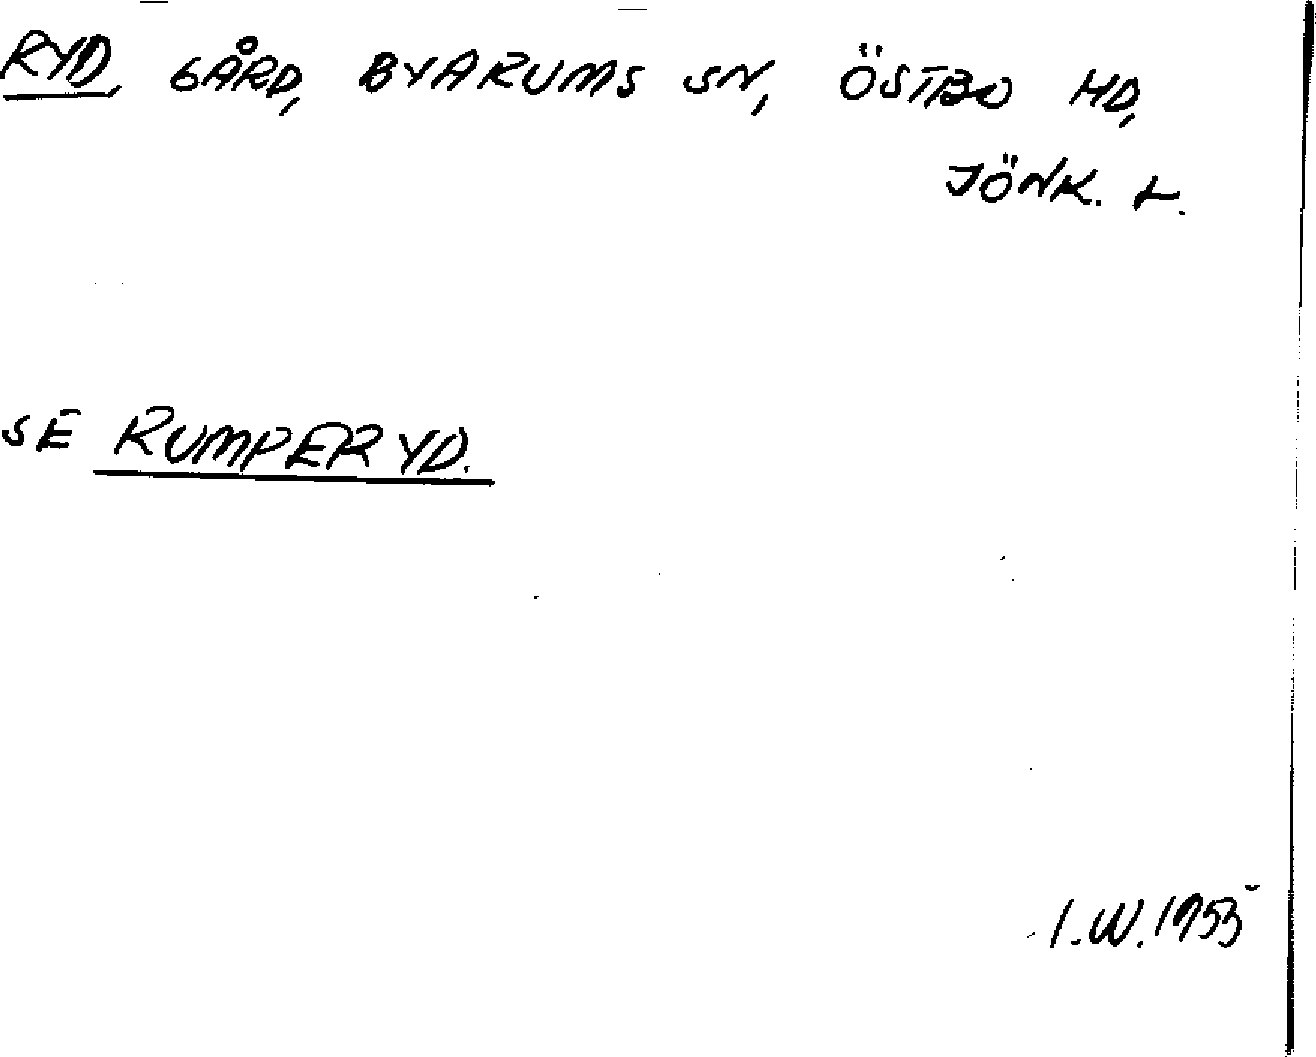 RYD, GÅRD, BYARUMS SN, ÖSTBO HD,
JÖNK. L.
SE RUMPERYD.
I.W. 1953